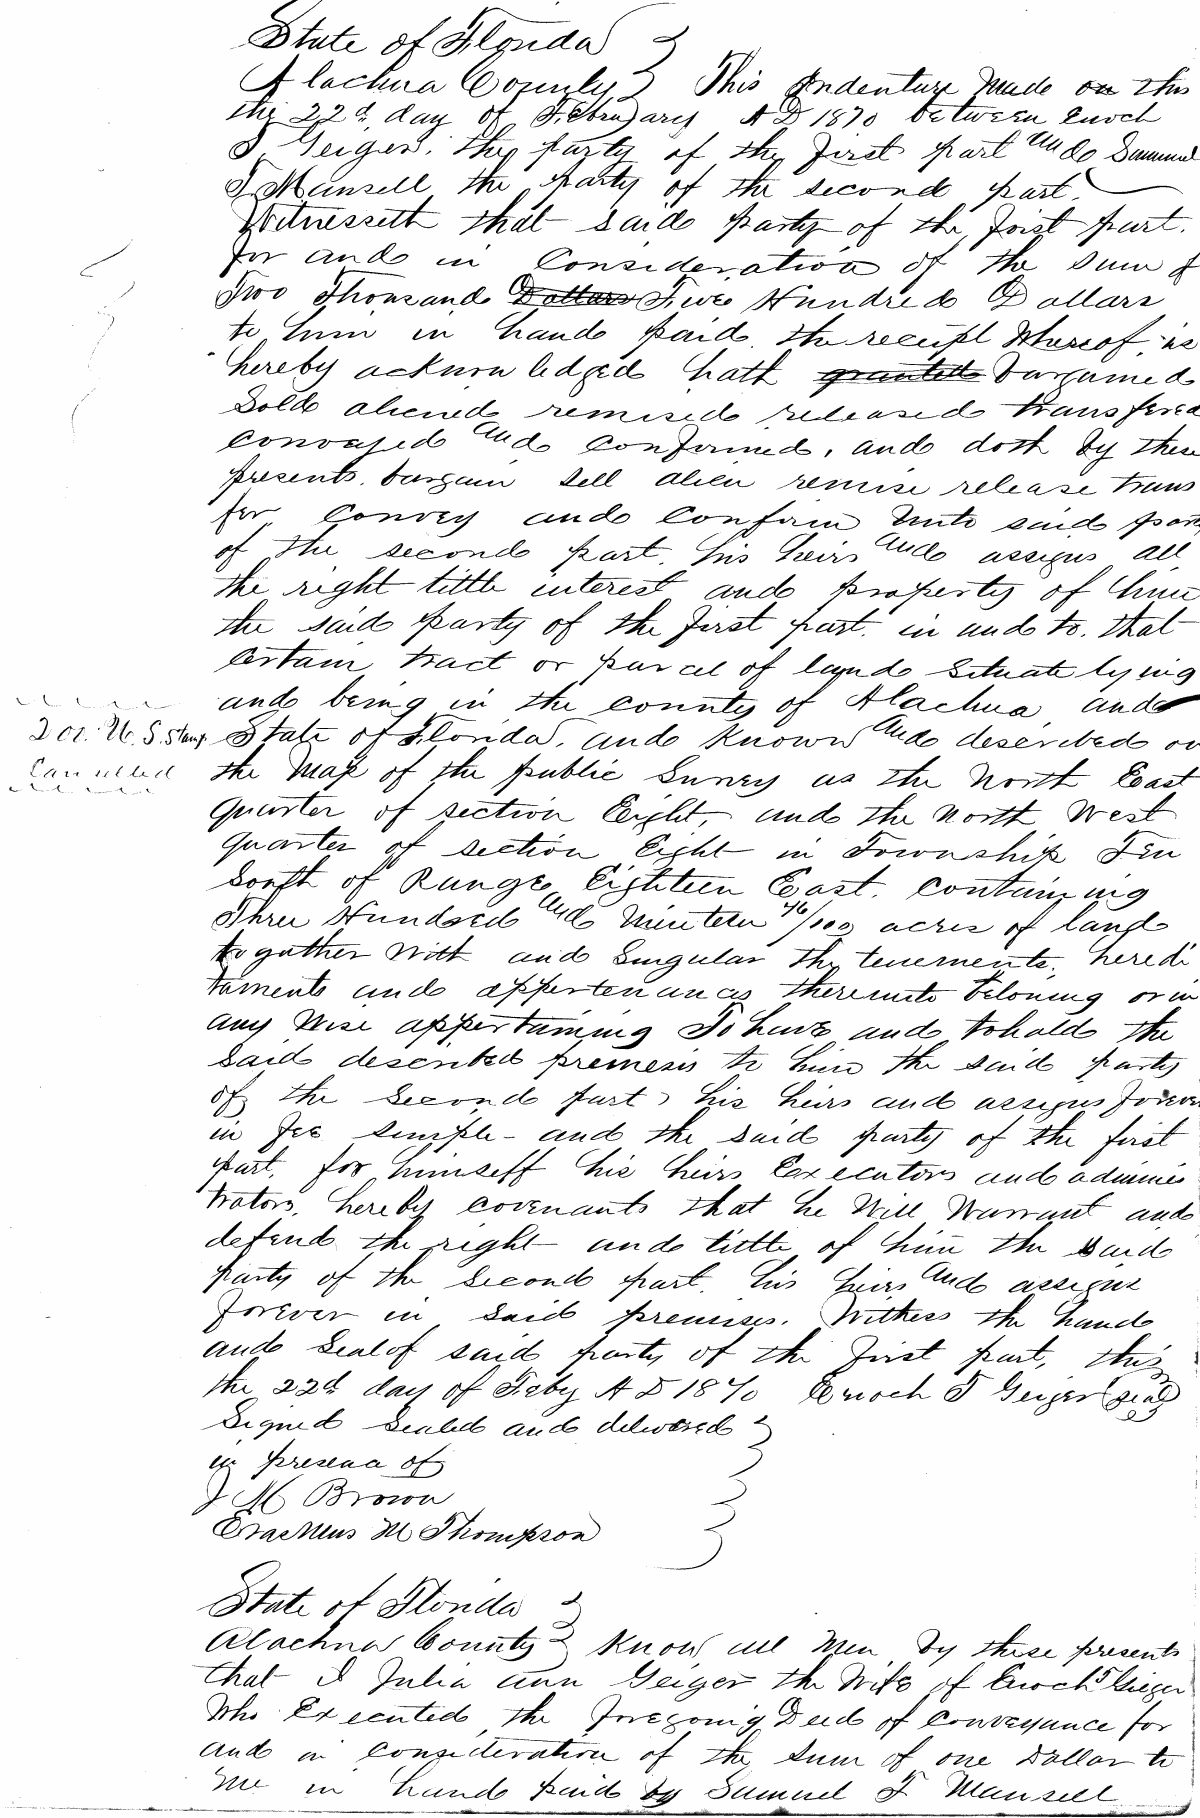 State of Florida
Alachua County This Indenture Made on this
the 22d day of February A D 1870 between Enoch
J Geiger. the party of the first part and Samuel
F Mansell the party of the second part
Witnesseth that said party of the first part.
for and in Consideration of the sum of
Two Thousand Dollars Five Hundred Dollars
to him in hand paid. the receipt Whereof is
hereby acknowledged hath granted bargained
Sold aliened remised released transfered
conveyed and confirmed, and doth by these
presents. bargain sell alien remise release trans
fer convey and confirm Unto said party
of the second part. his heirs and assigns all
the right tittle interest and property of him
the said party of the first part. in and to. that
certain tract or parcel of land situate lying
and being in the county of Alachua and
2 Dol. U. S. Stamp
Cancelled
State of Florida. and known and described on
the Map of the public Survey as the North East
quarter of section Eight, and the North West
quarter of section Eight in Township Ten
South of Range Eighteen East. containing
Three Hundred and Nineteen 46/100 acres of land
togather With and Singular the tenements, heredi
taments and appertenances thereunto beloning or in
any Wise appertaining To have and to hold the
said described premesis to him the said party
of the second part, his heirs and assigns forever
in fee simple - and the said party of the first
part, for himself his heirs Executors and adminis
trators, hereby covenants that he Will Warrant and
defend the right and tittle of him the said
party of the second part. his heirs and assigns
forever in said premises. Witness the hand
and Seal of said party of the first part, this
the 22d day of Feby A D 1870 Enoch J Geiger (seal)
Signed Sealed and delivered
in presence of
J M Brown
Erasmus M Thompson
State of Florida
Alachua County Know all Men by these presents
that I Julia ann Geiger the Wife of Enoch J Geiger
Who Executed the foregoing Deed of Conveyance for
and in consideration of the sum of one Dollar to
me in hand paid by Samuel F Mansell